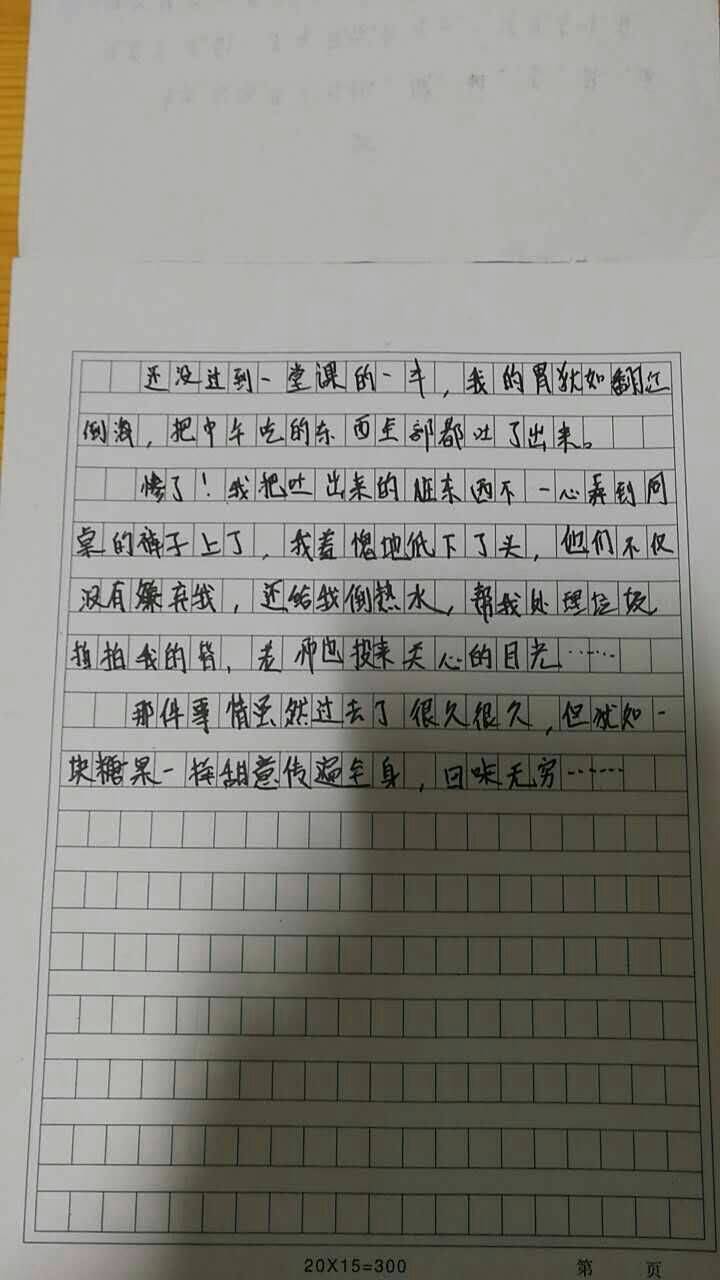 还没过到一堂课的一半，我的胃犹如翻江
倒海，把中午吃的东西全部都吐了出来。
惨了！我把吐出来的脏东西不一心弄到同
桌的裤子上了，我羞愧地低下了头，他们不仅
没有嫌弃我，还给我倒热水，帮我处理垃圾
拍拍我的背，老师也投来关心的目光……
那件事情虽然过去了很久很久，但犹如一
块糖果一样甜意传遍全身，回味无穷……
20X15=300
第 页